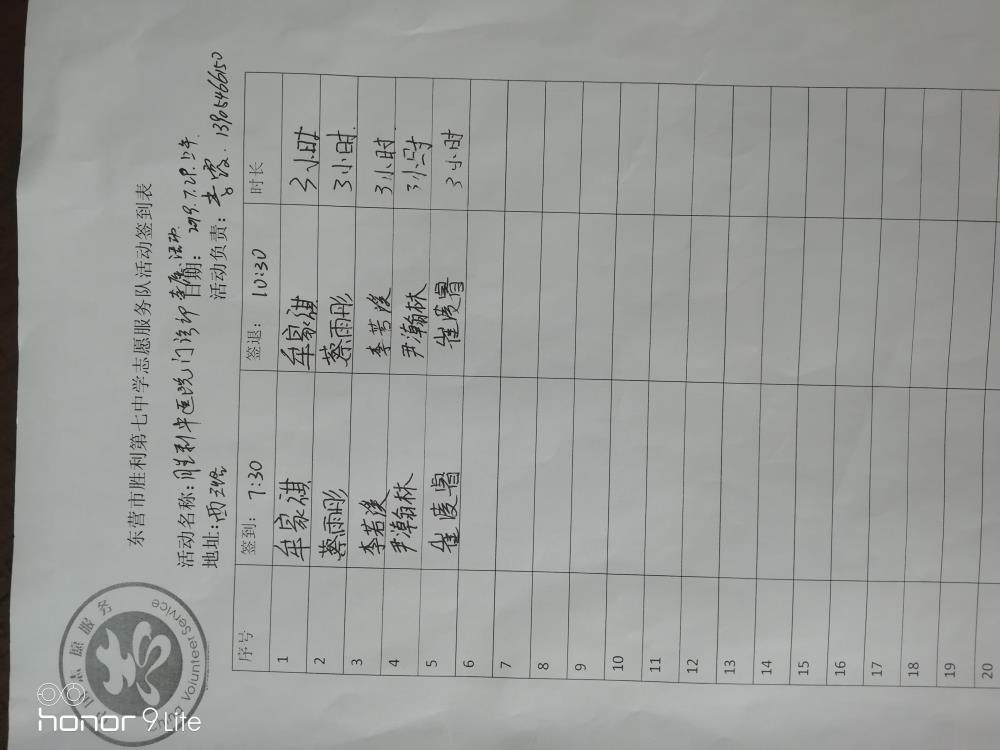 中国志愿服务
China Volunteer Service
东营市胜利第七中学志愿服务队活动签到表
活动名称：胜利中医院门诊 活动 日期：2019.7.29.上午
地址：西三路 活动负责：李霞 13905466150
序号 签到：7:30 签退：10:30 时长
1 牟家祺 牟家祺 3小时
2 蔡雨彤 蔡雨彤 3小时
3 李若溪 李若溪 3小时
4 尹瀚林 尹瀚林 3小时
5 崔凌睿 崔凌睿 3小时
6
7
8
9
10
11
12
13
14
15
16
17
18
19
20
honor 9 Lite